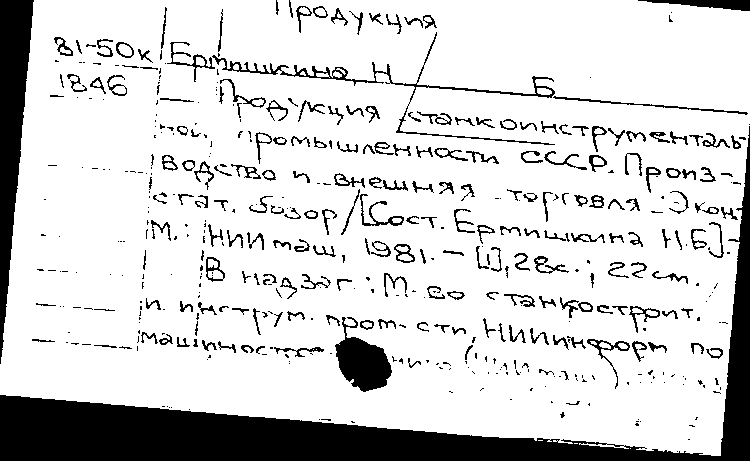 Продукция
81-50к Ермишкина, Н Б
1846
Продукция станкоинструменталь-
ной промышленности СССР. Произ-
водство и внешняя торговля: Экон.
стат. обзор / [Сост. Ермишкина Н.Б.].-
М.: НИИмаш, 1981. - [1], 28с.; 22см.
В надзаг.: М-во станкостроит.
и инструм. пром-сти, НИИинформ по
(НИИмаш).